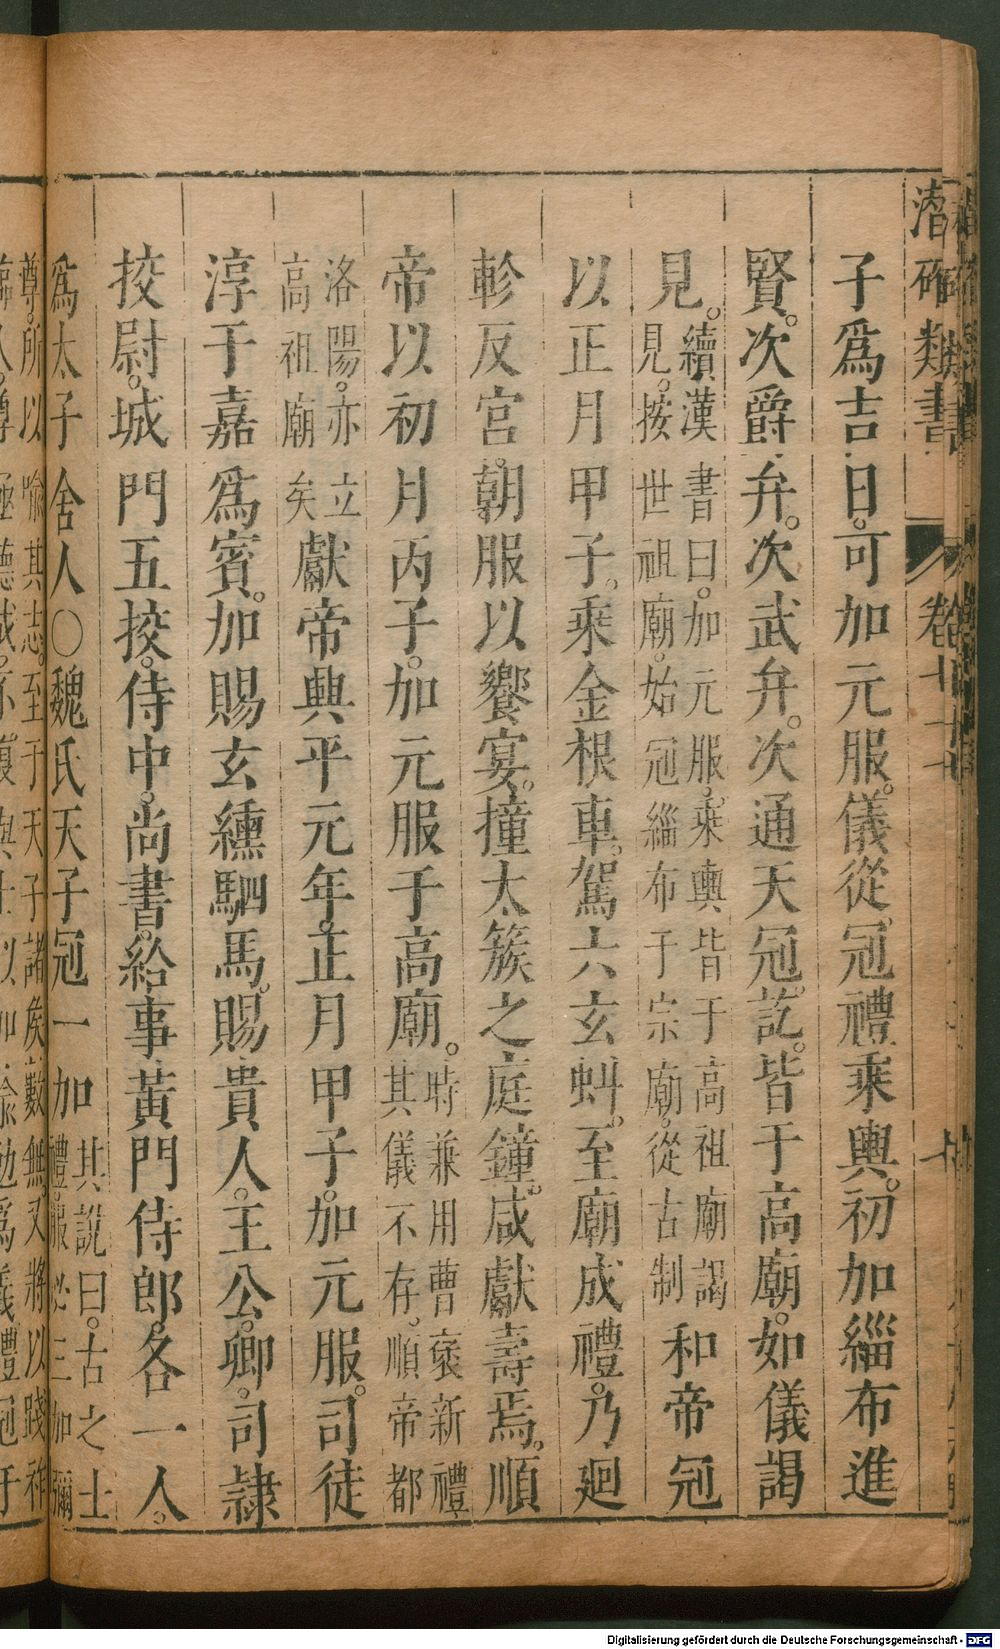 潛確類書 卷七十七
子爲吉日可加元服儀從冠禮乘輿初加緇布進
賢次爵弁次武弁次通天冠訖皆于高廟如儀謁
見續漢書曰加元服乘輿皆于高祖廟謁
見按世祖廟始冠緇布于宗廟從古制和帝冠
以正月甲子乘金根車駕六玄虯至廟成禮乃廻
軫反宮朝服以饗宴撞太簇之庭鐘咸獻壽焉順
帝以初月丙子加元服于高廟時兼用曹褒新禮
其儀不存順帝都
洛陽亦立
高祖廟矣獻帝興平元年正月甲子加元服司徒
淳于嘉爲賓加賜玄纁駟馬賜貴人王公卿司隸
挍尉城門五挍侍中尚書給事黃門侍郎各一人
爲太子舍人○魏氏天子冠一加其說曰古之士
禮服必三加彌
尊所以喻其志至于天子諸矦數無又將以踐祚
Digitalisierung gefördert durch die Deutsche Forschungsgemeinschaft - DFG